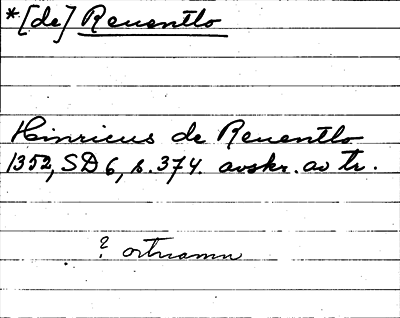 *[de] Reuentlo
Hinricus de Reuentlo
1352, SD 6, s. 374. avskr. av tr.
? ortnamn